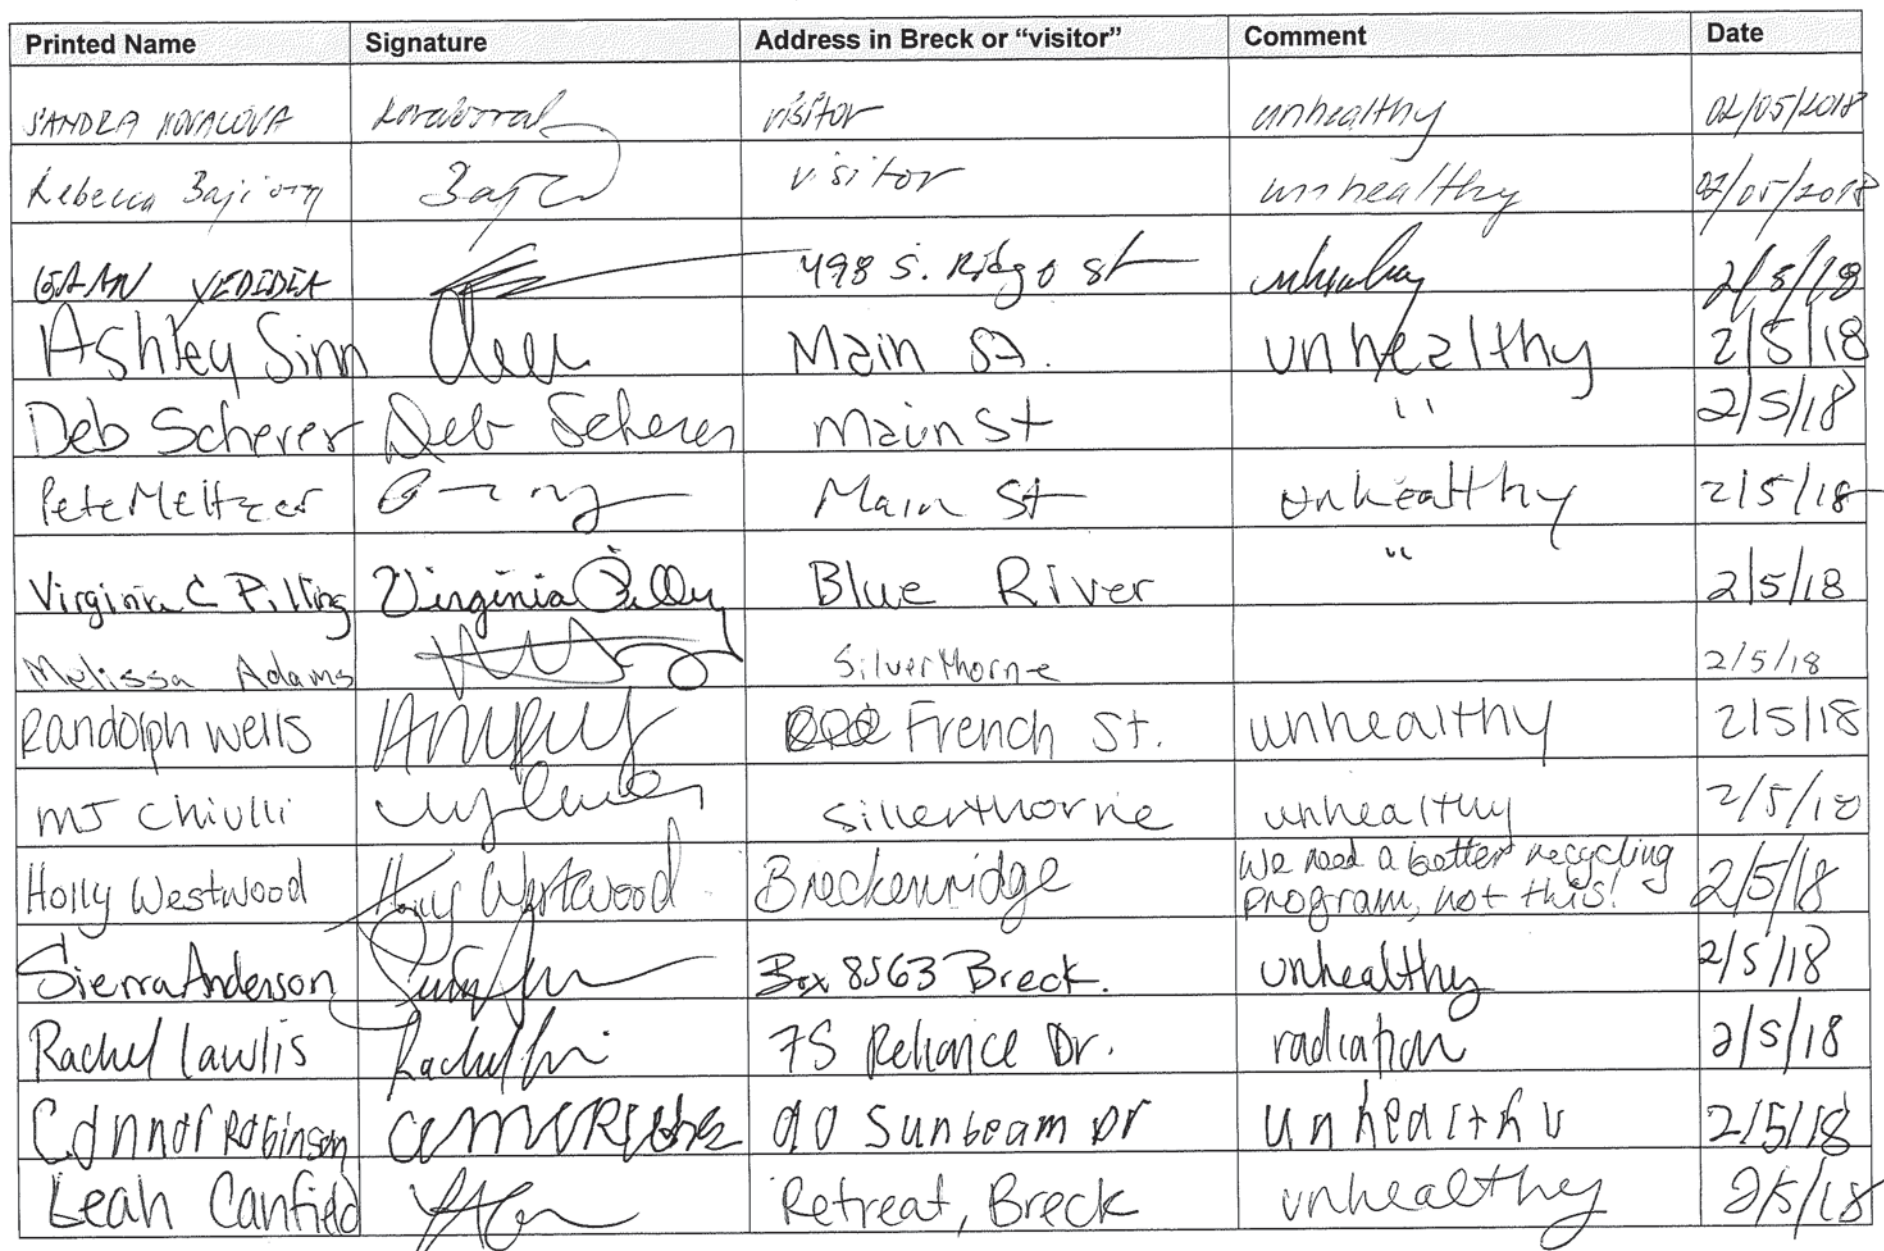 Printed Name Signature Address in Breck or “visitor” Comment Date
SANDRA KOVACOVA visitor unhealthy 02/05/2018
Rebecca visitor unhealthy 02/05/2018
YEDIDIA 498 S. Ridge St 2/5/18
Ashley Sinn Main St. unhealthy 2/5/18
Deb Scherer Deb Scherer Main St " 2/5/18
Pete Meltzer Main St unhealthy 2/5/18
Virginia C Pilling Virginia Pilling Blue River " 2/5/18
Melissa Adams Silverthorne 2/5/18
Randolph Wells French St. unhealthy 2/5/18
MJ Chiulli Silverthorne unhealthy 2/5/18
Holly Westwood Holly Westwood Breckenridge We need a better recycling
program, not this! 2/5/18
Sierra Anderson Box 8563 Breck. unhealthy 2/5/18
Rachel Lawlis Rachel 75 Reliance Dr. radiation 2/5/18
Connor Robinson 90 Sunbeam Dr unhealthy 2/5/18
Leah Canfield Retreat, Breck unhealthy 2/5/18